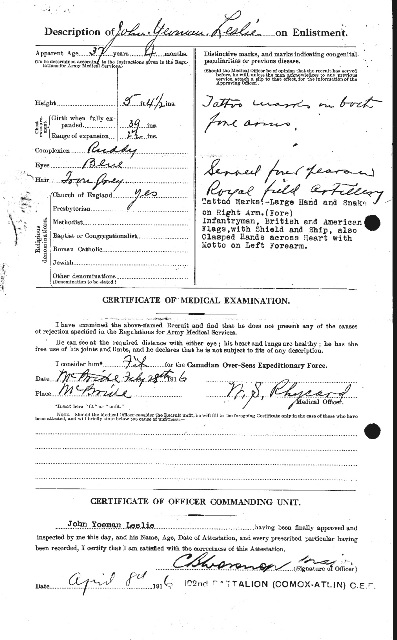 Description of John Yeoman Leslie on Enlistment.
Apparent Age 37 years months.
(To be determined according to the instructions given in the Regulations for Army Medical Services.)
Distinctive marks, and marks indicating congenital
peculiarities or previous disease.
(Should the Medical Officer be of opinion that the recruit has served
before, he will, unless the man acknowledges to any previous
service, attach a slip to that effect, for the information of the
Approving Officer.)
Height 5 ft. 4½ ins.
Girth when fully expanded 39 ins.
Range of expansion ins.
Complexion Ruddy
Eyes Blue
Hair Iron Grey
Tattoo marks on both
fore arms.
Served four years in
Royal field artillery
Tattad Marks:-Large Hand and Snake
on Right Arm.(Fore)
Infantryman, British and American
Flags,with Shield and Ship, also
Clasped Hands across Heart with
Motto on Left Forearm.
Religious denominations.
Church of England Yes
Presbyterian
Methodist
Baptist or Congregationalist
Roman Catholic
Jewish
Other denominations
(Denomination to be stated.)
CERTIFICATE OF MEDICAL EXAMINATION.
I have examined the above-named Recruit and find that he does not present any of the causes
of rejection specified in the Regulations for Army Medical Services.
He can see at the required distance with either eye; his heart and lungs are healthy; he has the
free use of his joints and limbs, and he declares that he is not subject to fits of any description.
I consider him* Fit for the Canadian Over-Seas Expeditionary Force.
Date McBride Feby 28th 1916
Place McBride
Medical Officer.
*Insert here "fit" or "unfit."
NOTE.—Should the Medical Officer consider the Recruit unfit, he will fill in the foregoing Certificate only in the case of those who
have been attested, and will briefly state below the cause of unfitness:—
CERTIFICATE OF OFFICER COMMANDING UNIT.
John Yoeman Leslie having been finally approved and
inspected by me this day, and his Name, Age, Date of Attestation, and every prescribed particular having
been recorded, I certify that I am satisfied with the correctness of this Attestation.
(Signature of Officer)
Date April 8th 1916 102nd BATTALION (COMOX-ATLIN) C.E.F.